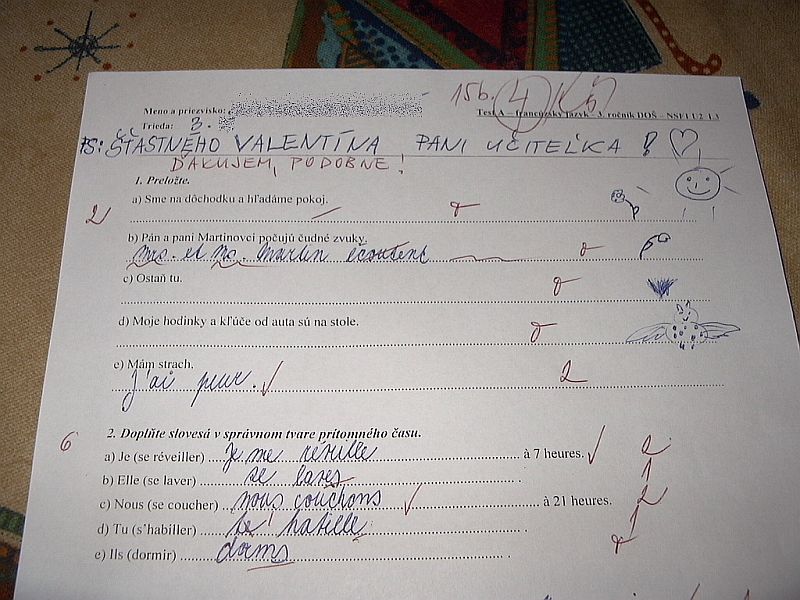 15b. 4
Meno a priezvisko:
Test A – francúzsky jazyk – 3. ročník DOŠ – NSF1 U2 L3
Trieda: 3.
PS: ŠŤASTNÉHO VALENTÍNA PANI UČITEĽKA !
ĎAKUJEM, PODOBNE!
1. Preložte.
2
a) Sme na dôchodku a hľadáme pokoj.
0
b) Pán a pani Martinovci počujú čudné zvuky.
mrs. et ms. Martin écoutent
0
c) Ostaň tu.
0
d) Moje hodinky a kľúče od auta sú na stole.
0
e) Mám strach.
J'ai peur.
2
6
2. Doplňte slovesá v správnom tvare prítomného času.
a) Je (se réveiller) je me réville à 7 heures. 2
b) Elle (se laver) se laves . 1
c) Nous (se coucher) nous couchons à 21 heures. 2
d) Tu (s'habiller) se habille . 1
e) Ils (dormir) dorms . 0